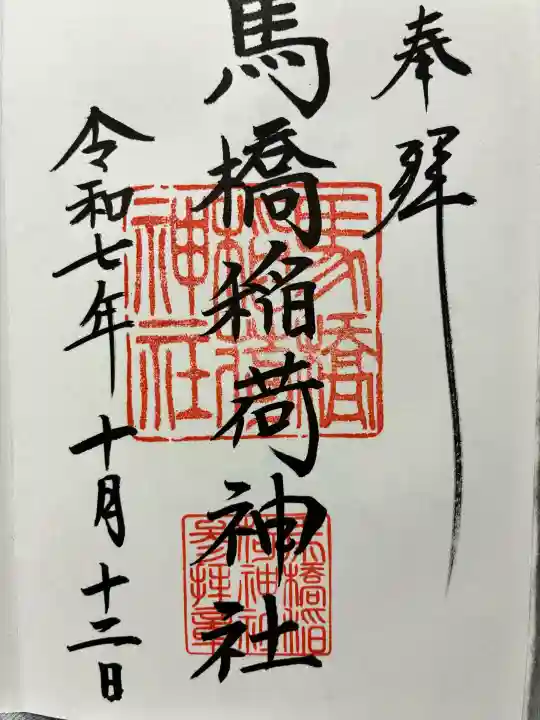 奉拝
馬橋稲荷神社
令和七年十月十二日
馬橋
稲荷
神社
馬橋稲
荷神社
参拝章